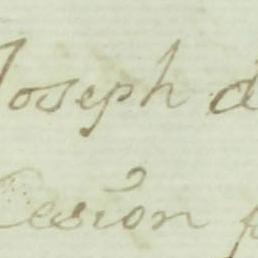 Joseph d
Cesion p